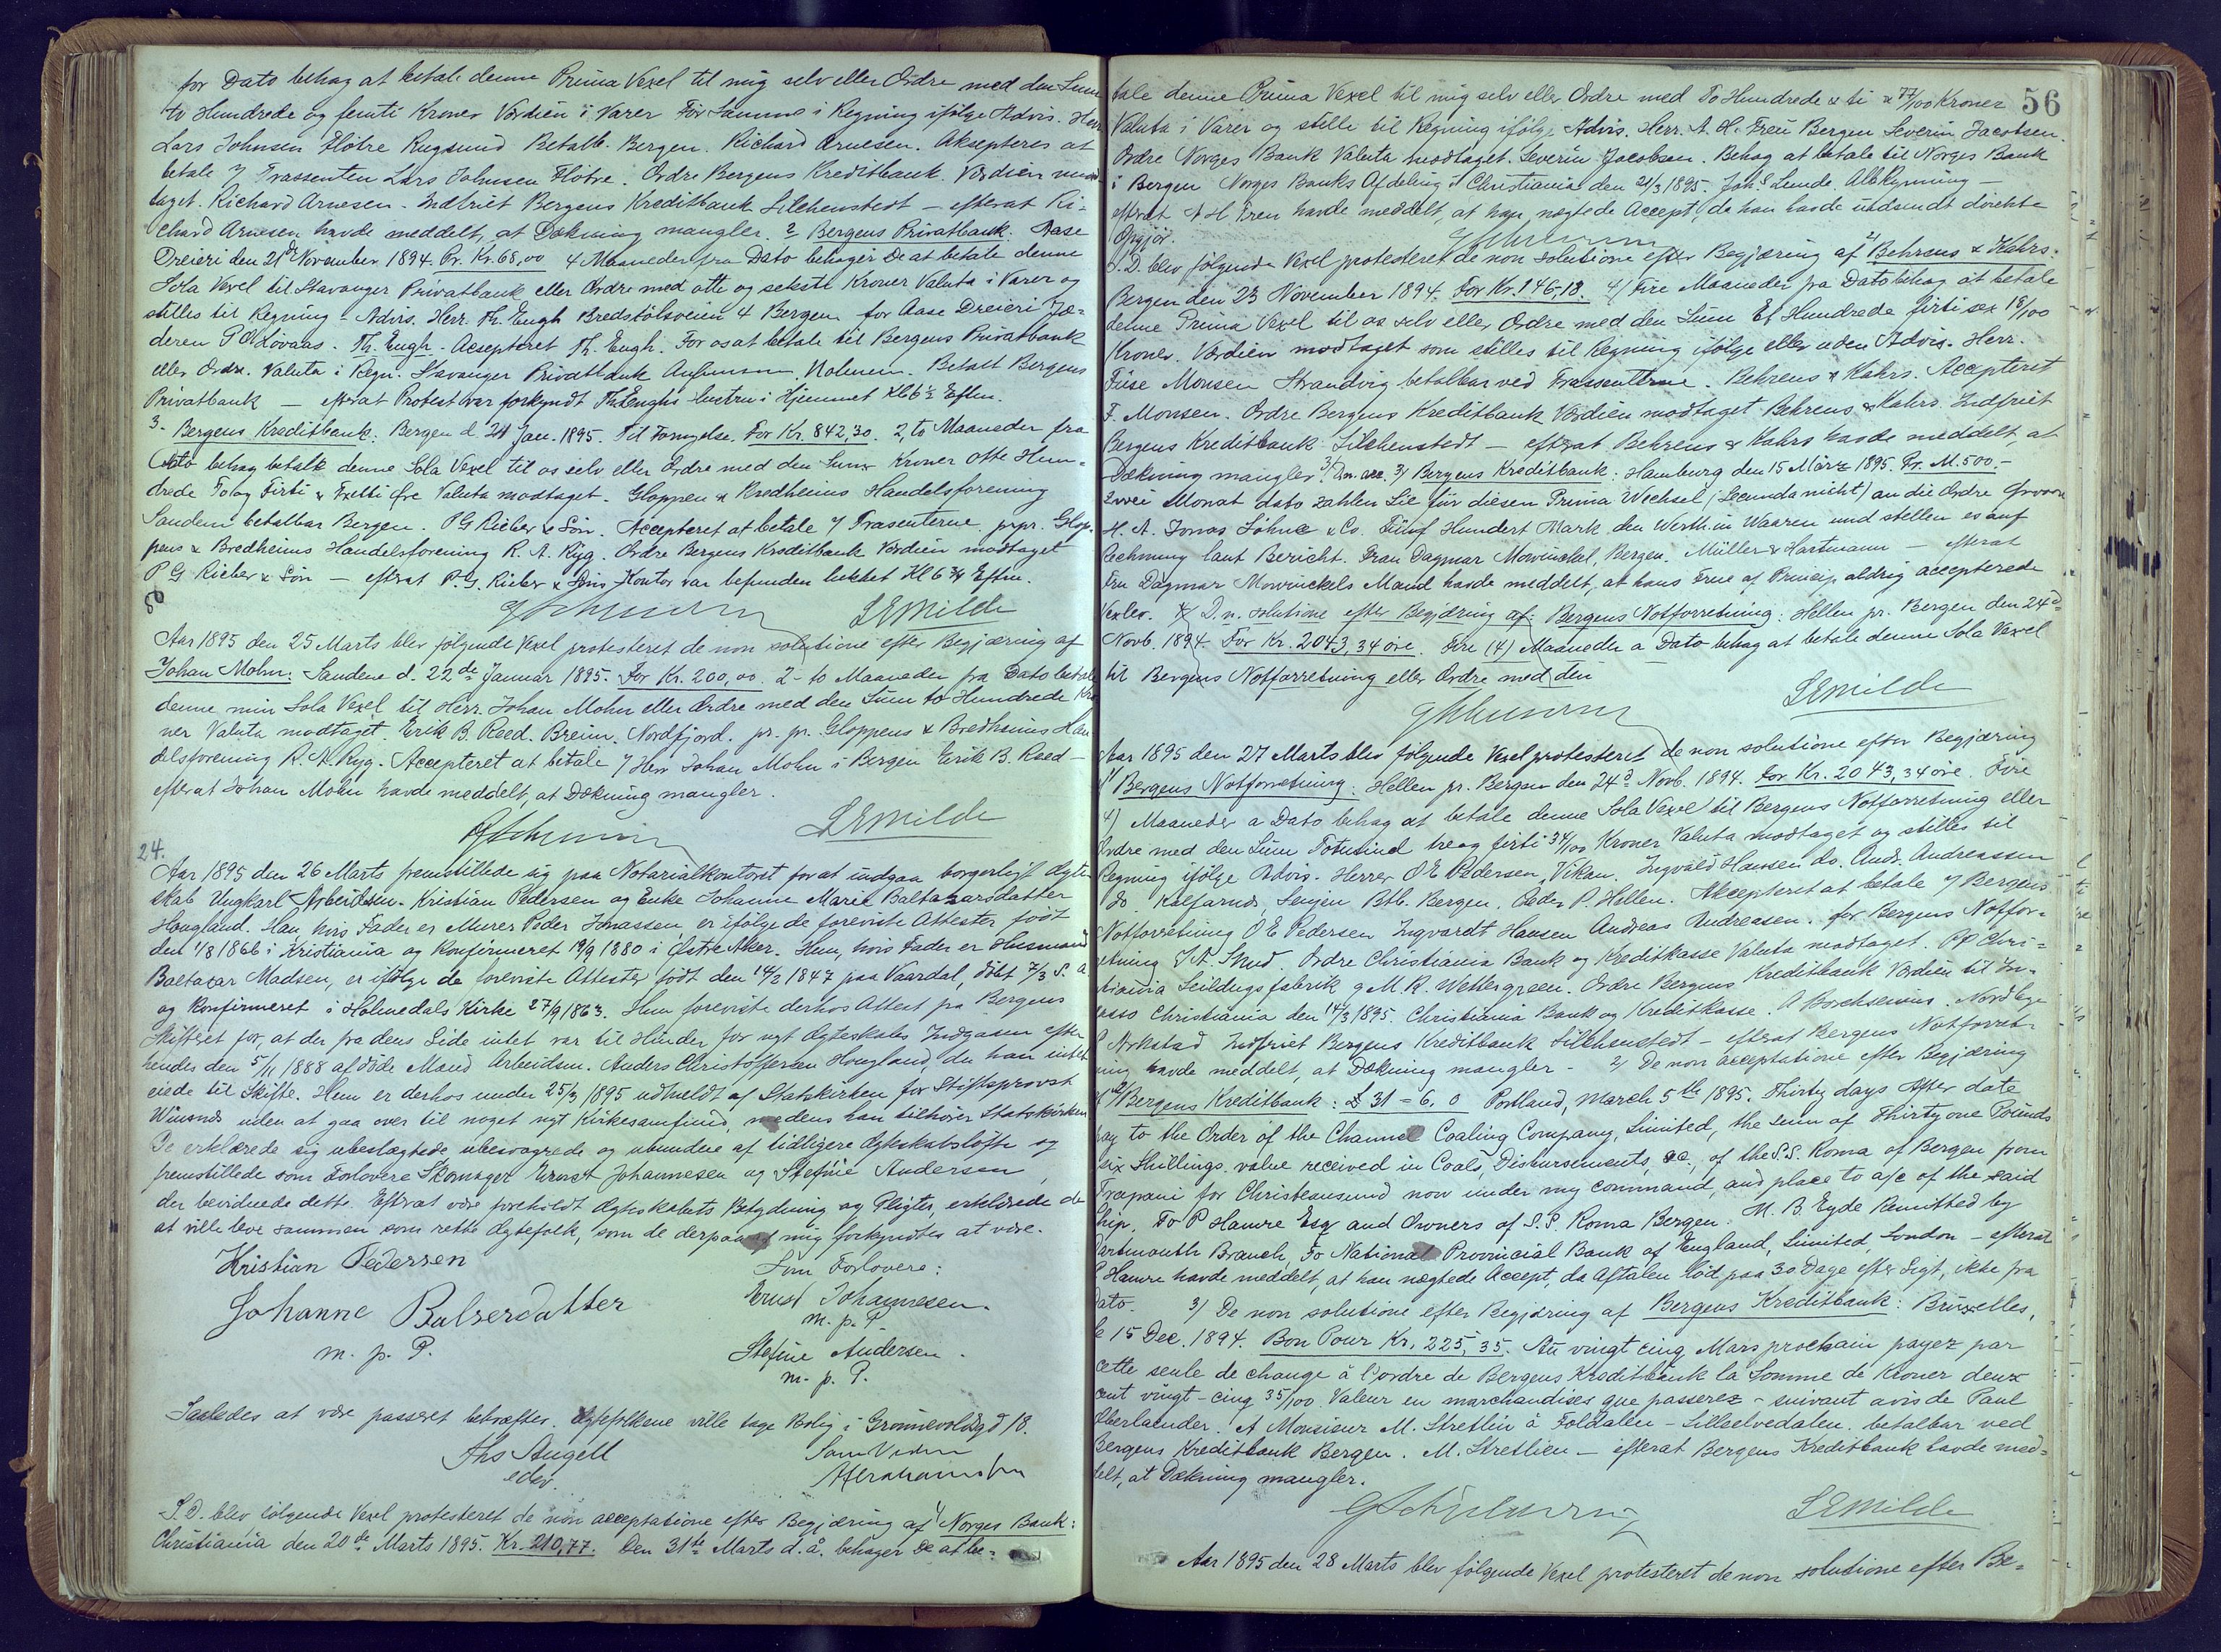 for Dato behag at betale denne Prima Vexel til mig selv eller Ordre med den Sum
to Hundrede og femti Kroner Værdien i Varer Før Samme i Regning ifølge Advis. Herr
Lars Johnsen Flötre Rugsund Betalb. Bergen. Richard Arnesen. Aksepteres at
betale Trassenten Lars Johnsen Flötre. Ordre Bergens Kreditbank. Værdien mod-
taget. Richard Arnesen. Indfriet Bergens Kreditbank Lilehenstedt – efterat Ri-
chard Arnesen havde meddelt, at Dækning mangler. 2 Bergens Privatbank. Aase
Dreieri den 21de November 1894. Pr. Kr. 68,00 4 Maaneder fra Dato behager De at betale denne
Sola Vexel til Stavanger Privatbank eller Ordre med otte og seksti Kroner Valuta i Varer og
stilles til Regning – Advis. Herr. Th. Engh Bredstölsveien 4 Bergen for Aase Dreieri Jæ-
deren P O Lovaas. Th. Engh. Accepteret Th. Engh. For os at betale til Bergens Privatbank
eller Ordre. Valuta i Regn. Stavanger Privatbank Betalt Bergens
Privatbank – efterat Protest var forkyndt Th. Enghs Hustru i Hjemmet Kl 6½ Eftm.
3. Bergens Kreditbank. Bergen d. 24 Jan. 1895. Til Fornyelse. For Kr. 842,30. 2, to Maaneder fra
Dato behag betale denne Sola Vexel til os selv eller Ordre med den Sum Kroner Otte Hun-
drede To og Firti & Tretti Øre Valuta modtaget. Gloppen & Bredheims Handelsforening
Sandene betalbar Bergen. P G Rieber & Søn. Accepteret at betale Trasenterne prpr. Glop-
pens & Bredheims Handelsforening R. N. Ryg. Ordre Bergens Kreditbank Værdien modtaget
P G Rieber & Søn – efterat P. G. Rieber & Søns Kontor var befunden lukket Kl 6¾ Eftm.
LEMilde
Aar 1895 den 25 Marts blev følgende Vexel protesteret de non solutione efter Begjæring af
Johan Mohn: Sandene d. 22de Januar 1895. For Kr. 200,00. 2 - to Maaneder fra Dato betale
denne min Sola Vexel til Herr. Johan Mohn eller Ordre med den Sum to Hundrede Kro
ner Valuta modtaget. Erik B. Roed. Breim. Nordfjord. pr. pr. Gloppens & Bredheims Han
delsforening R. N. Ryg. Accepteret at betale Herr Johan Mohn i Bergen Erik B. Roed –
efterat Johan Mohn havde meddelt, at Dækning mangler.
LEMilde
24.
Aar 1895 den 26 Marts fremstillede sig paa Notarialkontoret for at indgaa borgerligt Ægte
skab Ungkarl Arbeidsm. Kristian Pedersen og Enke Johanne Marie Baltazarsdatter
Hougland. Han, hvis Fader er Murer Peder Jonassen, er ifølge de foreviste Attester født
den 4/8 1866 i Kristiania og konfirmeret 19/9 1880 i Østre Aker. Hun, hvis Fader er Husmand
Baltazar Madsen, er ifølge de foreviste Attester født den 14/2 1847 paa Vaardal, døbt 7/3 s. A
og konfirmeret i Holmedals Kirke 27/9 1863. Hun foreviste derhos Attest fra Bergens
Skifteret for, at der fra dens Side intet var til Hinder for nyt Ægteskabs Indgaaen efter
hendes den 5/11 1888 afdøde Mand Arbeidsm. Anders Christoffersen Hougland, da han intet
eiede til Skifte. Hun er derhos under 25/3 1895 udmeldt af Statskirken for Stiftsprovst
Wiesnæs uden at gaa over til noget nyt Kirkesamfund, medens han tilhører Statskirken
De erklærede sig ubeslægtede, ubesvogrede og ubundne af tidligere Ægteskabsløfte og
fremstillede som Forlovere Skomager Ernst Johannesen og Stefine Andersen,
der bevidnede dette. Efterat være foreholdt Ægteskabets Betydning og Pligter, erklærede de
at ville leve sammen som rette Ægtefolk, som de derpaa af mig forkyndtes at være.
Kristian Pedersen
Som Forlovere:
Johanne Balserdatter
m. p. P.
Ernst Johannesen.
m. p. P.
Stefine Andersen.
m. p. P.
Saaledes at være passeret bekræftes. Ægtefolkene ville tage Bolig i Grønnevoldsgd 18.
Ths Angell
edsv.
Som Vidne
S. D. blev følgende Vexel protesteret de non acceptatione efter Begjæring af 1/ Norges Bank:
Christiania den 20de Marts 1895. Kr. 210,77. Den 31te Marts d. å. behager De at be-
56
tale denne Prima Vexel til mig selv eller Ordre med To Hundrede & ti & 77/100 Kroner
Valuta i Varer og stille til Regning ifølge Advis. Herr. A. H. Freu Bergen Severin Jacobsen.
Ordre Norges Bank Valuta modtaget. Severin Jacobsen. Behag at betale til Norges Bank
i Bergen Norges Banks Afdeling i Christiania den 21/3 1895. Joh. S Lunde. Alb Kynning –
efterat A H Freu havde meddelt, at han nægtede Accept, da han havde indsendt direkte
Opgjør.
S. D. blev følgende Vexel protesteret de non solutione efter Begjæring af 2/ Behrens & Kahrs:
Bergen den 23 November 1894. For Kr. 146,18. 4/ Fire Maaneder fra Dato behag at betale
denne Prima Vexel til os selv eller Ordre med den Sum Et Hundrede firti sex 18/100
Kroner. Værdien modtaget som stilles til Regning ifølge eller uden Advis. Herr.
Fuse Monsen Strandvig betalbar ved Trassenterne. Behrens & Kahrs. Accepteret
F. Monsen. Ordre Bergens Kreditbank Værdien modtaget Behrens & Kahrs. Indfriet
Bergens Kreditbank Lilehenstedt – efterat Behrens & Kahrs havde meddelt, at
Dækning mangler. 3/ D. n. acc. 3/ Bergens Kreditbank: Hamburg den 15 März 1895. Pr. M. 500.–
Zwei Monat dato zahlen Sie für diesen Prima Wechsel (Secunda nicht) an die Ordre
H. A. Jonas Söhne & Co. Fünf Hundert Mark den Werth in Waaren und stellen es auf
Rechnung laut Bericht. Frau Dagmar Mowinckel, Bergen. Müller & Hartmann – efterat
Fru Dagmar Mowinckels Mand havde meddelt, at hans Frue af Princip aldrig accepterede
Vexler. 4/ D. n. solutione efter Begjæring af: Bergens Notforretning: Hellen pr. Bergen den 24d
Novb. 1894. For Kr. 2043,34 øre. Fire (4) Maaneder a Dato behag at betale denne Sola Vexel
til Bergens Notforretning eller Ordre med den
LEMilde
Aar 1895 den 27 Marts blev følgende Vexel protesteret de non solutione efter Begjæring
1/ Bergens Notforretning: Hellen pr. Bergen den 24d Novb. 1894. For Kr. 2043,34 øre. Fire
4) Maaneder a Dato behag at betale denne Sola Vexel til Bergens Notforretning eller
Ordre med den Sum Totusind treog firti 34/100 Kroner Valuta modtaget og stilles til
Regning ifølge Advis. Herrer O E Pedersen, Vikan, Ingvald Hansen do. Andr. Andreassen
do. Kalfarnes, Senjen Btb. Bergen. Peder P. Hellen. Akcepteret at betale Bergens
Notforretning O E Pedersen Ingvardt Hansen Andreas Andreasen. for Bergens Notfor-
retning Ordre Christiania Bank og Kreditkasse Valuta modtaget. PP Chri-
stiania Seildugsfabrik g M. R. Wettergreen. Ordre Bergens Kreditbank Værdien til In-
casso Christiania den 14/3 1895. Christiania Bank og Kreditkasse. A Borchsenius. Nordbye
Arkstad Indfriet Bergens Kreditbank Lilehenstedt – efterat Bergens Notforret-
ning havde meddelt, at Dækning mangler – 2/ De non acceptatione efter Begjæring
af 2/ Bergens Kreditbank: £ 31 = 6. 0 Portland, March 5th 1895. Thirty days after date
pay to the Order of the Channel Coaling Company, Limited, the sum of Thirtyone Pounds
six Shillings. value received in Coals, Disbursements, &c., of the S.S. Roma of Bergen from
Trapani for Christeansund now under my command, and place to a/c of the said
Ship. To P Hamre Esq and Owners of S.S Roma Bergen. M. B. Eyde Remitted by
Dartmouth Branch, To National Provincial Bank of England, Limited, London – efterat
P Hamre havde meddelt, at han nægtede Accept, da Aftalen lød paa 30 Dage efter Sigt, ikke fra
Dato. 3) De non solutione efter Begjæring af Bergens Kreditbank: Bruxelles,
le 15 Dec. 1894. Bon Pour Kr. 225,35. Au vingt cinq Mars prochain payez par
cette seule de change à l'ordre de Bergens Kreditbank la Somme de Kroner deux
cent vingt-cinq 35/100 Valeur en marchandises que passerez – suivant avis de Paul
Oberlaender. A Monsieur M. Stretlin à Foldalen – Lilleelvedalen. betalbar ved
Bergens Kreditbank Bergen. M. Stretlien – efterat Bergens Kreditbank havde med-
delt, at Dækning mangler.
LEMilde
Aar 1895 den 28 Marts blev følgende Vexel protesteret de non solutione efter Be-